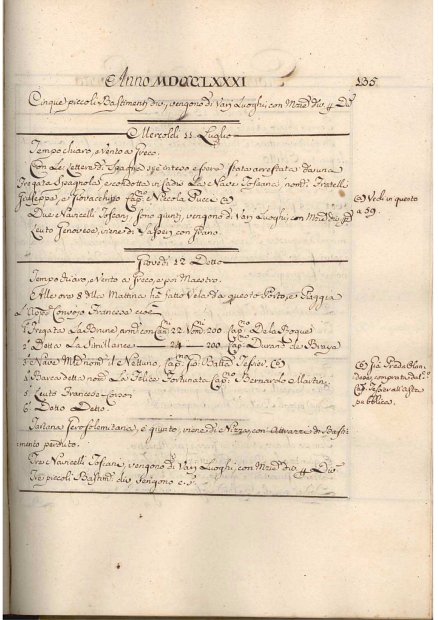 Anno MDCCLXXXI 135
Cinque piccoli Bastimenti div. vengono di Varj Luoghi, con Merc. div.
Mercoldì 11 Luglio
Tempo chiaro, e Vento a Greco.
Con Lettera di Spagna si è inteso essere stata arrestata da una
Fregata Spagnola e condotta in Cadice La Nave Toscana nom. i Fratelli
Giuseppe, e Giovacchino Cap. Niccola Pucci (a)
Due Navicelli Toscani, sono giunti, vengono di Varj Luoghi, con Merc. div.
Leuto Genovese, viene di con Grano.
(a) Vedi in questo
a 59.
Giovedì 12 Detto
Tempo chiaro, e Vento a Greco, e poi Maestro.
E Alle ore 8 della Mattina ha fatto Vela da questo Porto, e Piaggia
Convojo Francese cioè
1 Fregata La Brune arm. con Can. 22 Uni. 200 Cap. De la Roque
2 Detta La 24 — 200 Cap. Durant de Braye
3 Nave nom. il Nettuno, Cap. Gio. Batta (b)
4 Barca detta nom. La Felice Fortunata Cap. Bernardo Martini
5 Leuto Francese Corso
6 Detto Detto
(b) Già Preda Olan-
dese, comprata dal
Cap. all'asta
pubblica.
Tartana Gerosolimitana, è giunta, viene di Nizza, con Attrazzi di Basti-
mento perduto.
Tre Navicelli Toscani, vengono di Varj Luoghi, con Merc. div.
Tre piccoli Bastim. div. vengono c. s.